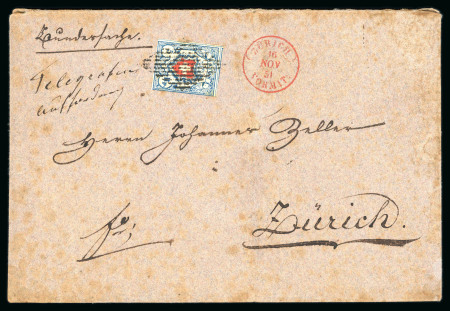 Bundersache.
ZÜRICH
16
NOV
51
VORMIT.
Telegrafen
Herrn Johannes Zeller
fo;
Zürich.